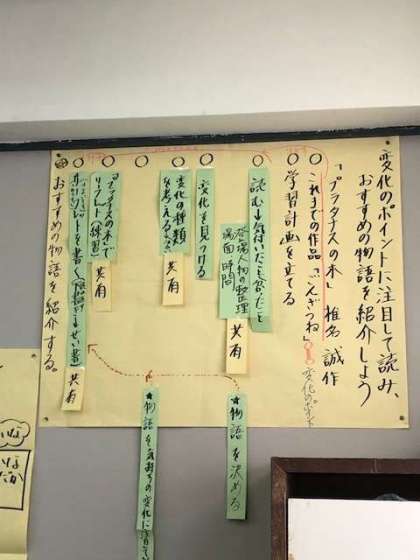 変化のポイントに注目して読み、
おすすめの物語を紹介しよう
「プラタナスの木」 椎名 誠作
これまでの作品「ごんぎつね」
変化のポイント
学習計画を立てる
読む→気付いたこと
登場人物の整理
場面 時間
共有
変化を見つける
変化の種類
を考える
共有
「プラタナスの木」で
リーフレット(練習)
共有
リーフレットを書く
共有
おすすめの物語を紹介する。
★物語を決める
★物語を気持ちの変化に注